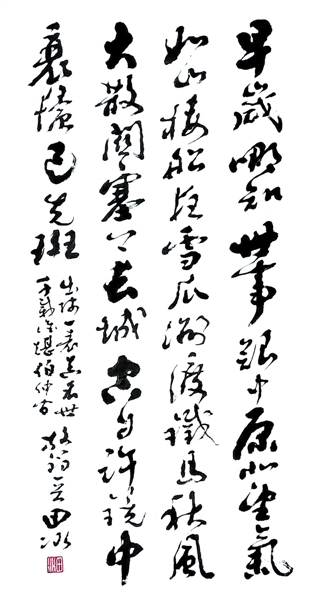 早歲哪知世事艱中原北望氣
如山樓船夜雪瓜洲渡鐵馬秋風
大散關塞上長城空自許鏡中
衰鬢已先班
出師一表真名世
千載誰堪伯仲間
放翁 田冰